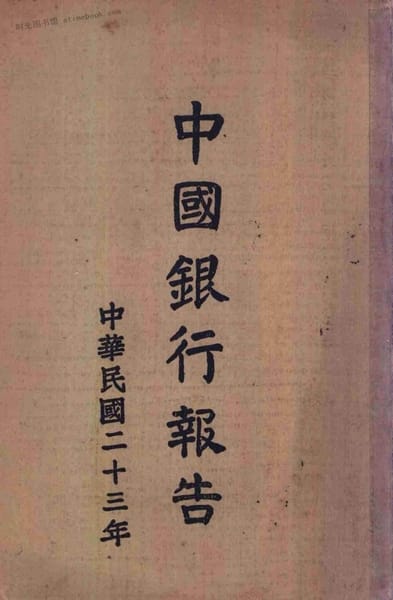 时光图书馆 stimebook.com
中國銀行報告
中華民國二十三年